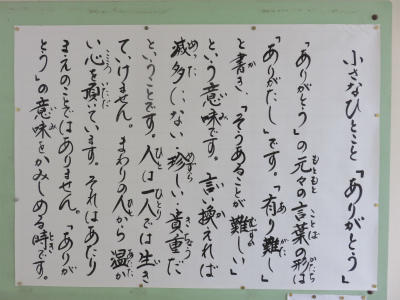 小さなひとこと『ありがとう』
「ありがとう」の元々の言葉の形は
「ありがたし」です。「有り難し」
と書き、「そうあることが難しい」
という意味です。言い換えれば
滅多にない・珍しい・貴重だ
ということです。人は一人では生き
ていけません。まわりの人から温か
い心を頂いています。それはあたり
まえのことではありません。「ありが
とう」の意味をかみしめる時です。